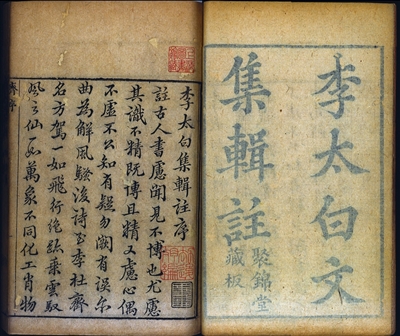 李太白文
集輯註
聚錦堂
藏板
李太白集輯註序
註古人書慮聞見不博也尤慮
其識不精既博且精又慮心偶
不虛不公知有疑勿闕有誤尓
曲為解風騷後詩至李杜齊
名方駕一如飛行絶跡乘雲馭
風之仙一如萬象不同化工肖物